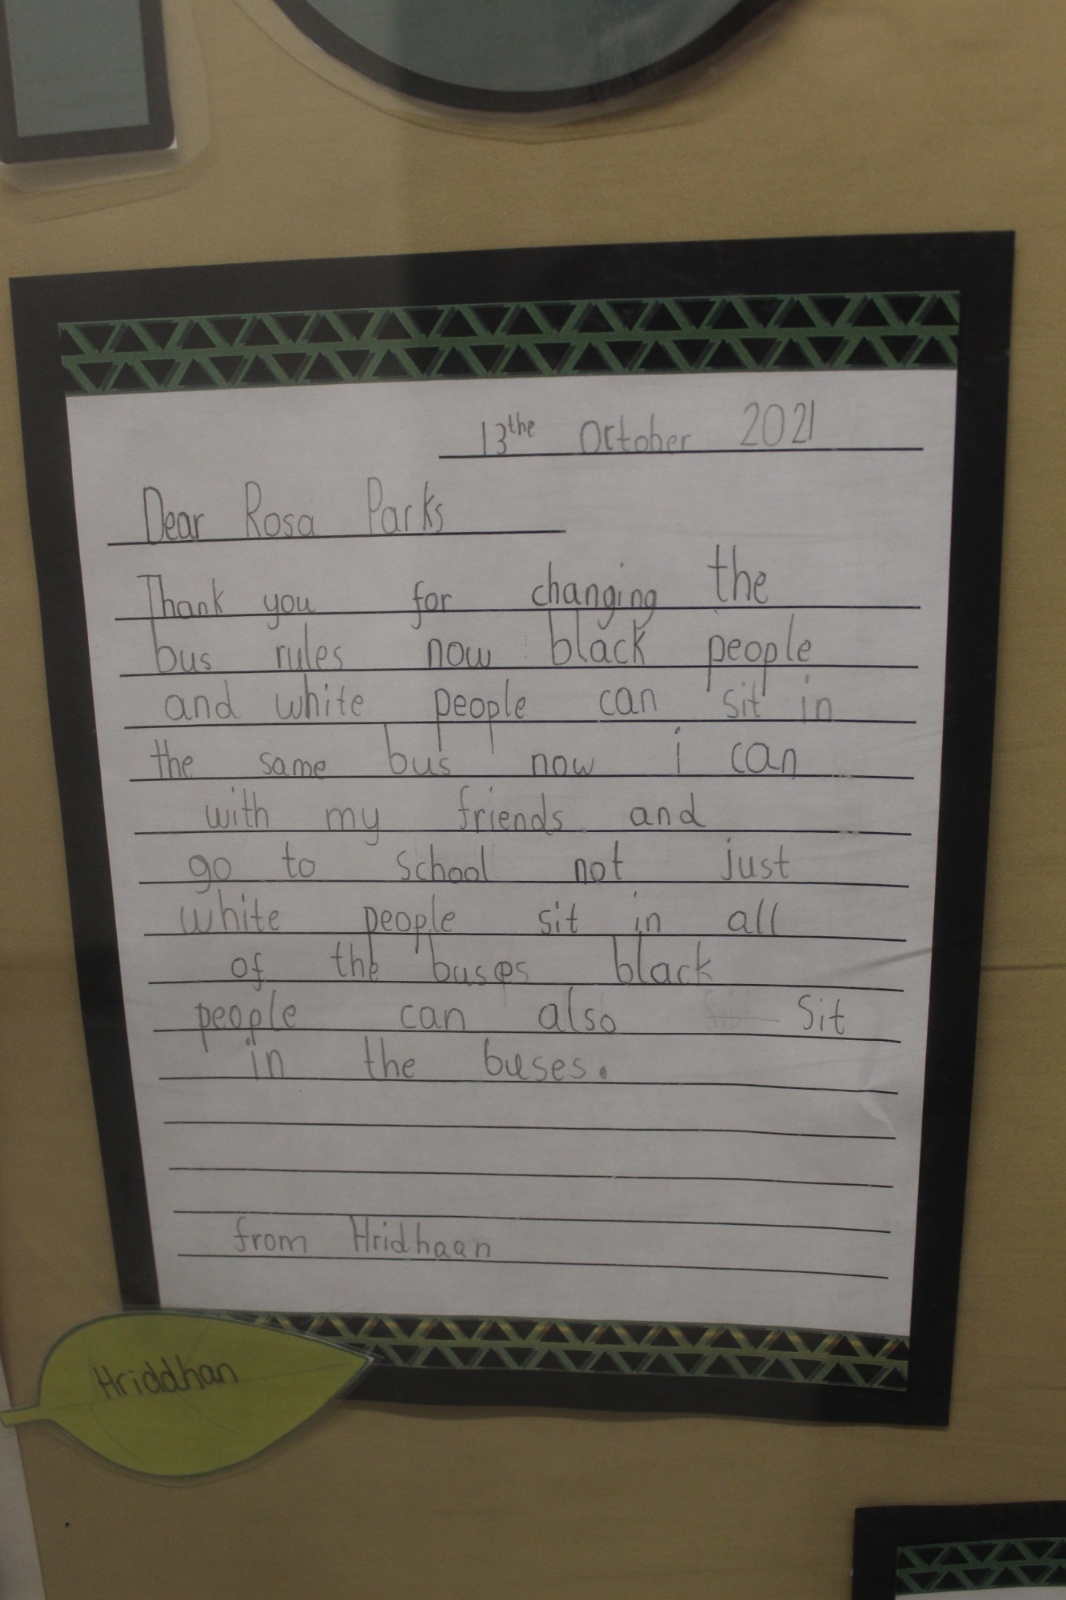 13the October 2021
Dear Rosa Parks
Thank you for changing the
bus rules now black people
and white people can sit in
the same bus now i can
with my friends and
go to school not just
white people sit in all
of the buses black
people can also sit
in the buses.
from Hridhaan
Hriddhan